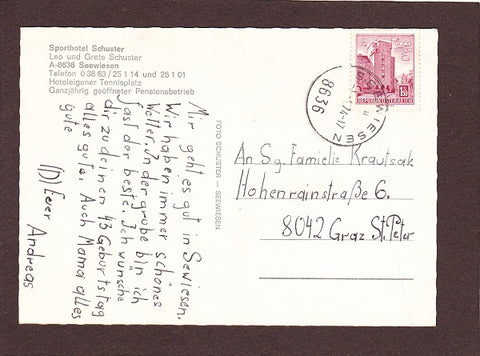 Sporthotel Schuster
Leo und Grete Schuster
A-8636 Seewiesen
Telefon 0 38 63 / 25 1 14 und 25 1 01
Hoteleigener Tennisplatz
Ganzjährig geöffneter Pensionsbetrieb
Mir geht es gut in Seewiesen.
Wir haben immer schönes
Wetter. In der grube bin ich
fast der beste. Ich wünsche
dir zu deinen 43 Geburtstag
alles gute. Auch Mama alles
gute
(D) Euer Andreas
FOTO SCHUSTER — SEEWIESEN
REPUBLIK ÖSTERREICH
8636
An Sg. Famielie Krautsak
Hohenrainstraße 6.
8042 Graz St. Peter